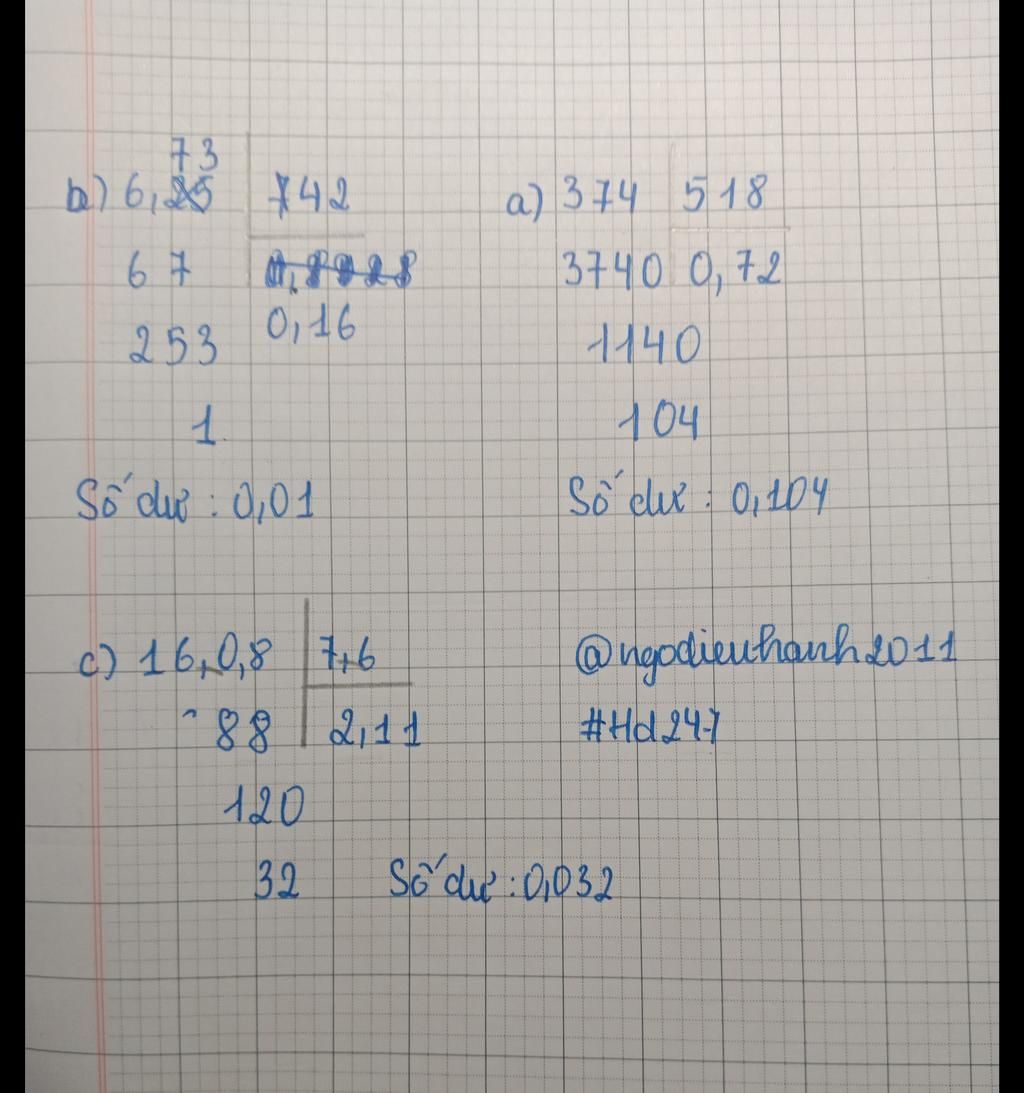 73
b) 6,25 742
67 0,8928
253 0,16
1
Số dư : 0,01
a) 374 518
3740 0,72
1140
104
Số dư : 0,104
c) 16,0,8 7,6
88 2,11
120
32 Số dư : 0,032
@ngodieuhanh2011
#Hd247